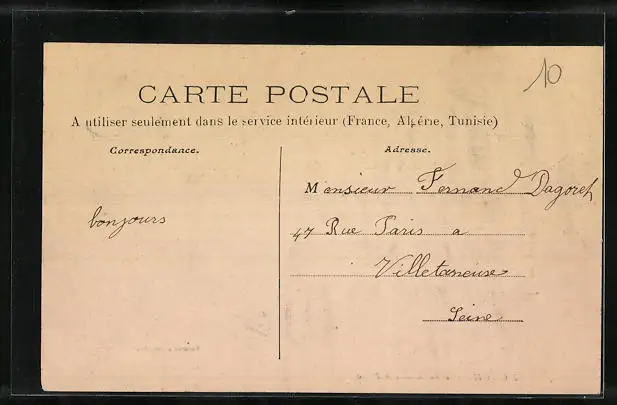 10
CARTE POSTALE
A utiliser seulement dans le service intérieur (France, Algérie, Tunisie)
Correspondance.
Adresse.
bonjours
Monsieur Fernand Dagoret
47 Rue Paris a
Villetaneuse
Seine